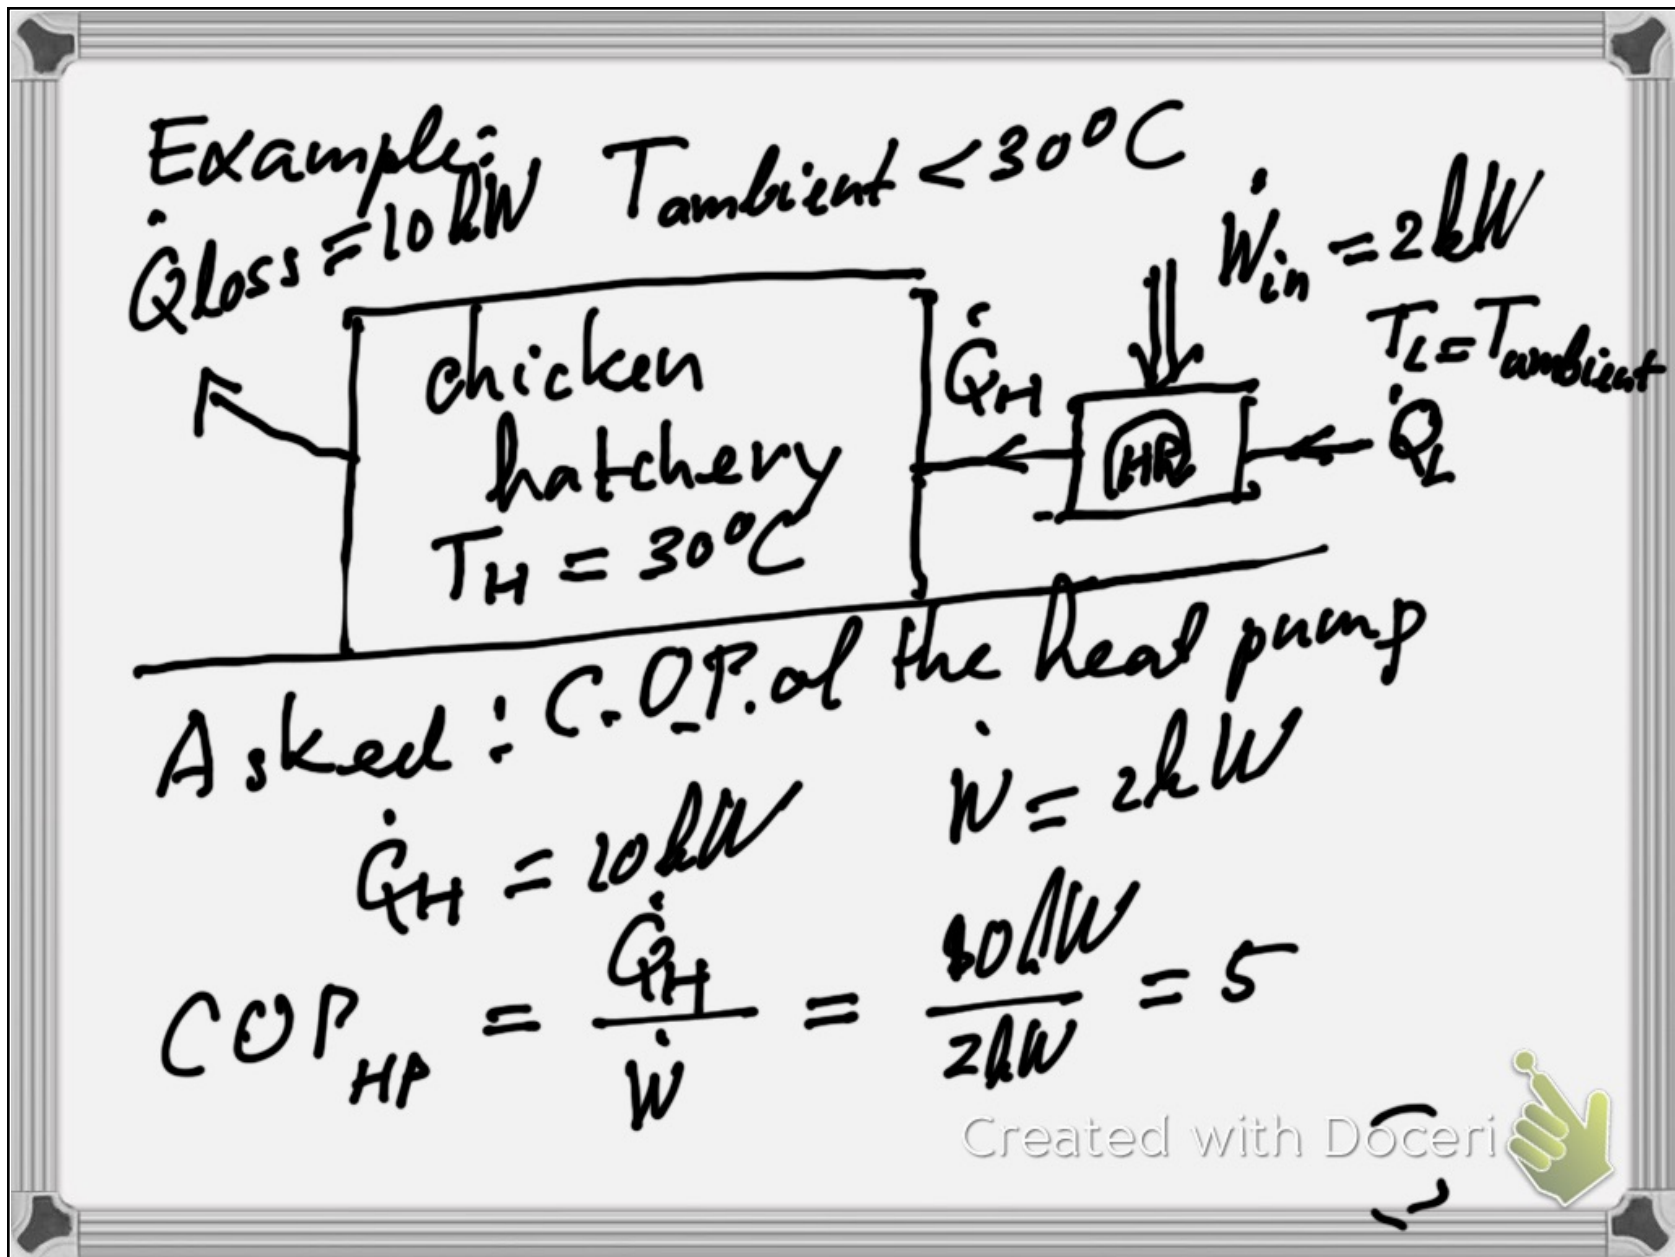 Example:
Q̇loss = 10 kW
T ambient < 30°C
Ẇin = 2 kW
TL = T ambient
chicken
hatchery
TH = 30°C
Q̇H
HP
Q̇L
Asked: C.O.P. of the heat pump
Q̇H = 10 kW
Ẇ = 2 kW
COP HP = Q̇H / Ẇ = 10 kW / 2 kW = 5
Created with Doceri